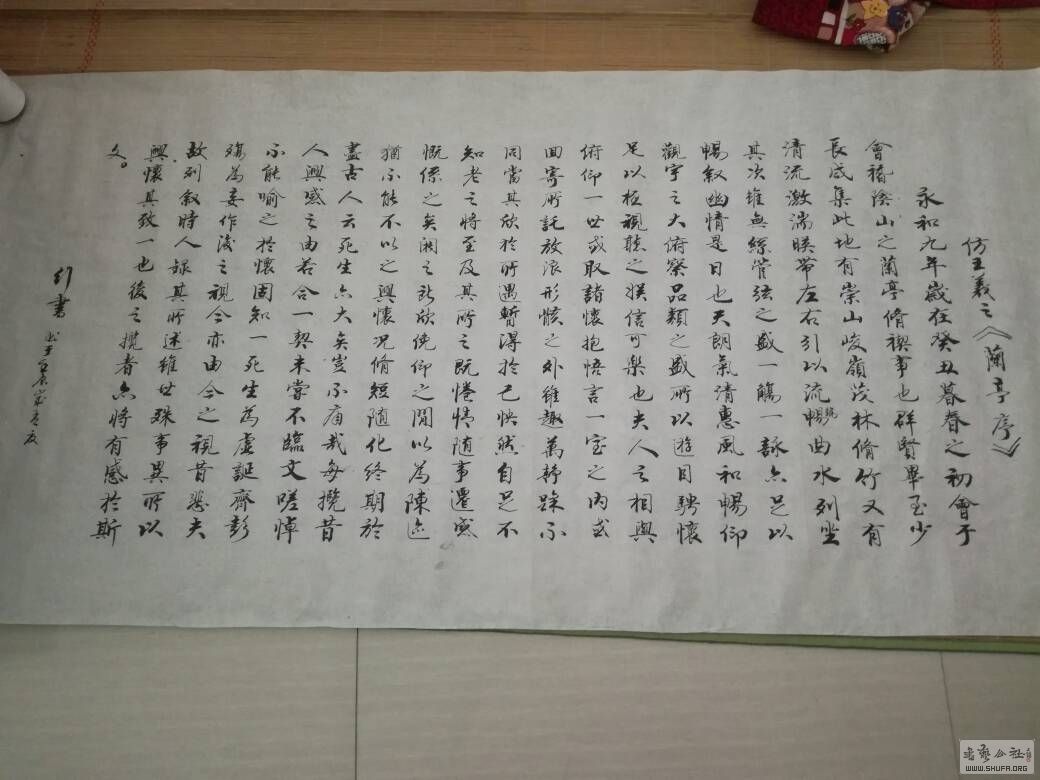 仿王羲之《蘭亭序》
永和九年歲在癸丑暮春之初會于
會稽陰山之蘭亭脩禊事也群賢畢至少
長咸集此地有崇山峻嶺茂林脩竹又有
清流激湍暎帶左右引以流暢曲水列坐
其次雖無絲管弦之盛一觴一詠亦足以
暢叙幽情是日也天朗氣清惠風和暢仰
觀宇之大俯察品類之盛所以遊目騁懷
足以極視聽之娛信可樂也夫人之相與
俯仰一世或取諸懷抱悟言一室之内或
因寄所託放浪形骸之外雖趣萬静躁不
同當其欣於所遇暫得於己怏然自足不
知老之將至及其所之既惓情随事遷感
慨係之矣向之所欣俛仰之間以為陳迹
猶不能不以之興懷况脩短随化終期於
盡古人云死生亦大矣豈不痛哉每攬昔
人興感之由若合一契未嘗不臨文嗟悼
不能喻之於懷固知一死生為虚誕齊彭
殤為妄作後之視今亦由今之視昔悲夫
故列叙時人録其所述雖世殊事異所以
興懷其致一也後之攬者亦將有感於斯
文。
行書
書藝公社
WWW.SHUFA.ORG